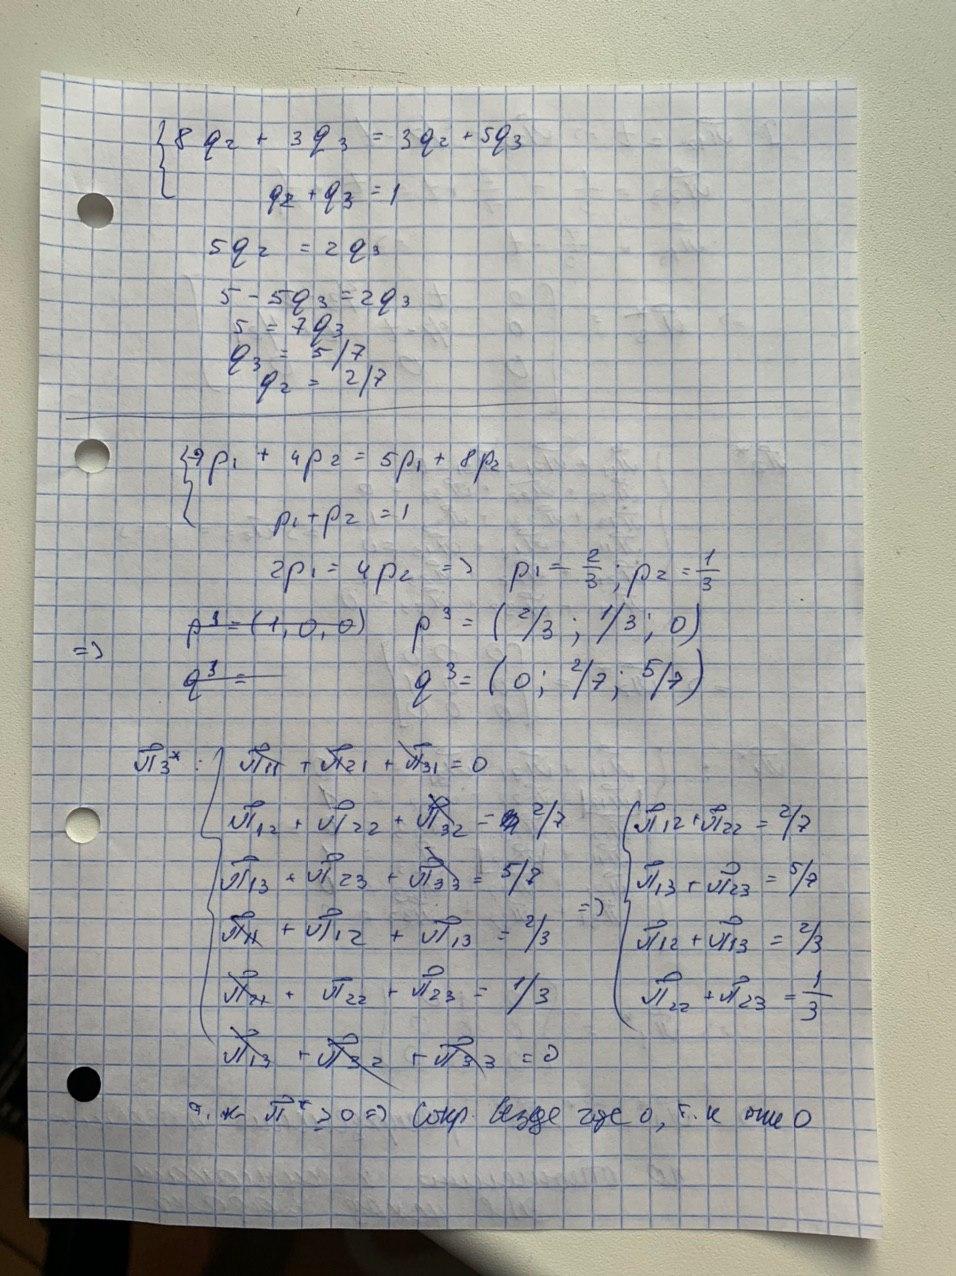 8q₂ + 3q₃ = 3q₂ + 5q₃
q₂ + q₃ = 1
5q₂ = 2q₃
5 - 5q₃ = 2q₃
5 = 7q₃
q₃ = 5/7
q₂ = 2/7
7p₁ + 4p₂ = 5p₁ + 8p₂
p₁ + p₂ = 1
2p₁ = 4p₂ => p₁ = 2/3 ; p₂ = 1/3
p³ = (1, 0, 0) p³ = (2/3 ; 1/3 ; 0)
=>
q³ = q³ = (0 ; 2/7 ; 5/7)
π̄₃* : π̄₁₁ + π̄₂₁ + π̄₃₁ = 0
π̄₁₂ + π̄₂₂ + π̄₃₂ = 2/7 π̄₁₂ + π̄₂₂ = 2/7
π̄₁₃ + π̄₂₃ + π̄₃₃ = 5/7 π̄₁₃ + π̄₂₃ = 5/7
=>
π̄₁₁ + π̄₁₂ + π̄₁₃ = 2/3 π̄₁₂ + π̄₁₃ = 2/3
π̄₂₁ + π̄₂₂ + π̄₂₃ = 1/3 π̄₂₂ + π̄₂₃ = 1/3
π̄₁₃ + π̄₃₂ + π̄₃₃ = 0
т.к. π̄* ≥ 0 => сокр. везде где 0, т.к они 0